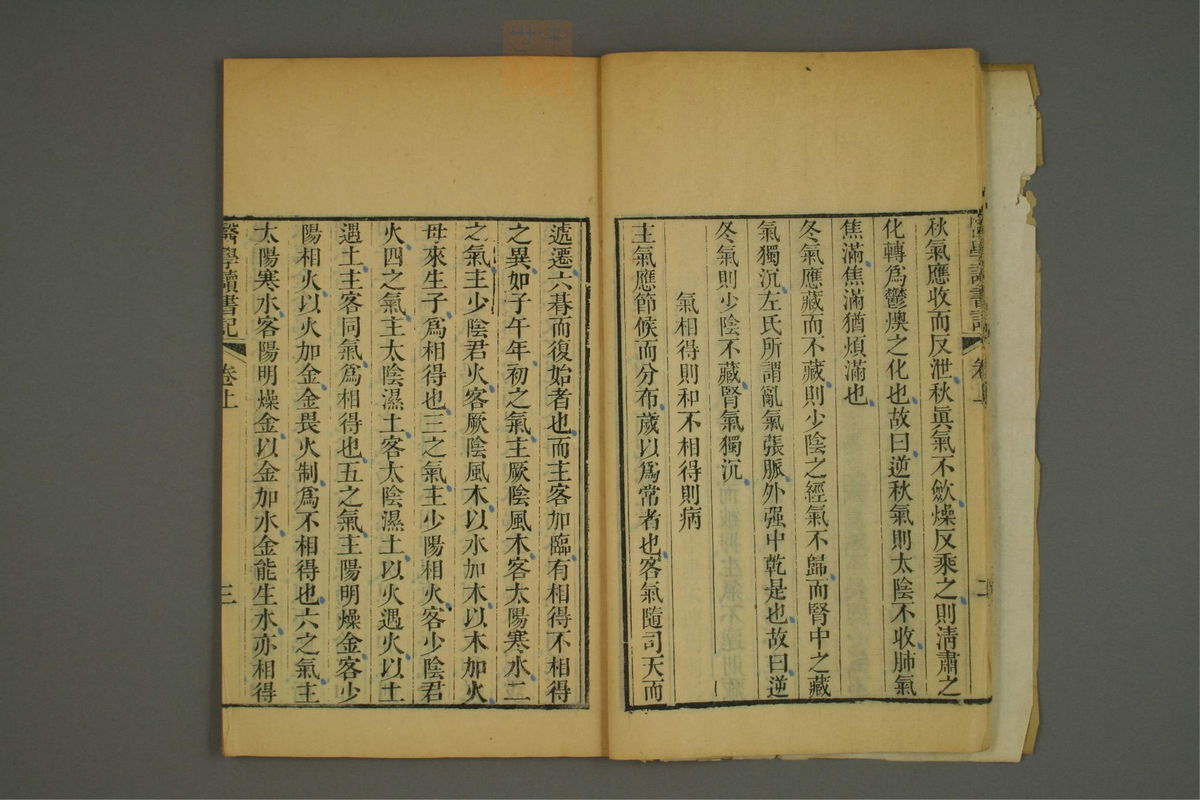 醫學讀書記 卷上 二
秋氣應收而反泄秋眞氣不斂燥反乘之則淸肅之
化轉爲鬱燠之化也故曰逆秋氣則太陰不收肺氣
焦滿焦滿猶煩滿也
冬氣應藏而不藏則少陰之經氣不歸而腎中之藏
氣獨沉左氏所謂亂氣張脈外强中乾是也故曰逆
冬氣則少陰不藏腎氣獨沉
氣相得則和不相得則病
主氣應節候而分布歲以爲常者也客氣隨司天而
遞遷六朞而復始者也而主客加臨有相得不相得
之異如子午年初之氣主厥陰風木客太陽寒水二
之氣主少陰君火客厥陰風木以水加木以木加火
母來生子爲相得也三之氣主少陽相火客少陰君
火四之氣主太陰濕土客太陰濕土以火遇火以土
遇土主客同氣爲相得也五之氣主陽明燥金客少
陽相火以火加金金畏火制爲不相得也六之氣主
太陽寒水客陽明燥金以金加水金能生水亦相得
醫學讀書記 卷上 三